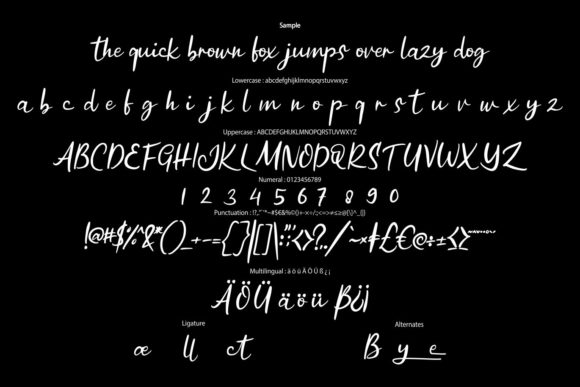 Sample
the quick brown fox jumps over lazy dog
Lowercase : abcdefghijklmnopqrstuvwxyz
a b c d e f g h i j k l m n o p q r s t u v w x y z
Uppercase : ABCDEFGHIJKLMNOPQRSTUVWXYZ
ABCDEFGHIJKLMNOPQRSTUVWXYZ
Numeral : 0123456789
1 2 3 4 5 6 7 8 9 0
Punctuation : !?,"˝*~#$€&%©()+-×÷/:;<=>≠≤≥@[\]^_{|}
!@#$%^&*()_+-={}|[]\:";'<>?,./
Multilingual : ä ö ü Ä Ö Ü ß ¿ ¡
ÄÖÜ äöü ß¿¡
Ligature Alternates
æ ll ct B y e